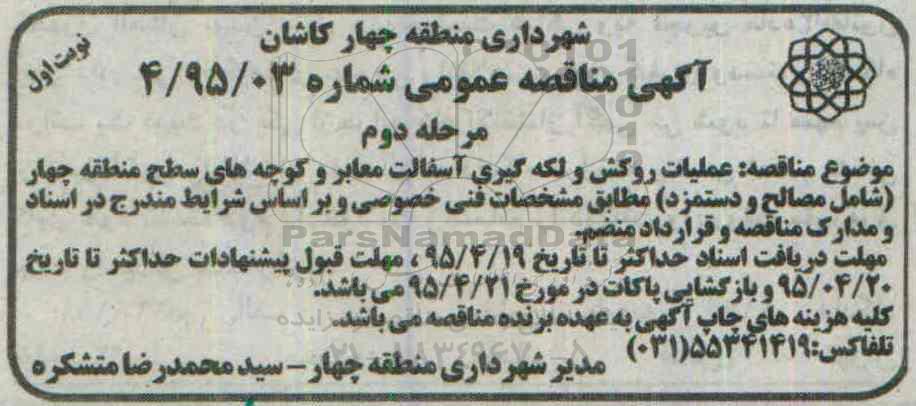 شهرداری منطقه چهار کاشان
نوبت اول
آگهی مناقصه عمومی شماره ۴/۹۵/۰۳
مرحله دوم
موضوع مناقصه: عملیات روکش و لکه گیری آسفالت معابر و کوچه های سطح منطقه چهار
(شامل مصالح و دستمزد) مطابق مشخصات فنی خصوصی و بر اساس شرایط مندرج در اسناد
و مدارک مناقصه و قرارداد منضم.
ParsNamadData
مهلت دریافت اسناد حداکثر تا تاریخ ۹۵/۴/۱۹ ، مهلت قبول پیشنهادات حداکثر تا تاریخ
۹۵/۰۴/۲۰ و بازگشایی پاکات در مورخ ۹۵/۴/۲۱ می باشد.
کلیه هزینه های چاپ آگهی به عهده برنده مناقصه می باشد.
تلفاکس:۵۵۳۴۱۴۱۹(۰۳۱)
مدیر شهرداری منطقه چهار – سید محمدرضا متشکره